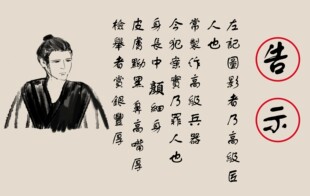 告示
左記圖影者乃高級匠
人也
常製作高級兵器
今犯案實乃罪人也
身長中 顏細身
皮膚黝黑 鼻高嘴厚
檢舉者賞銀豐厚